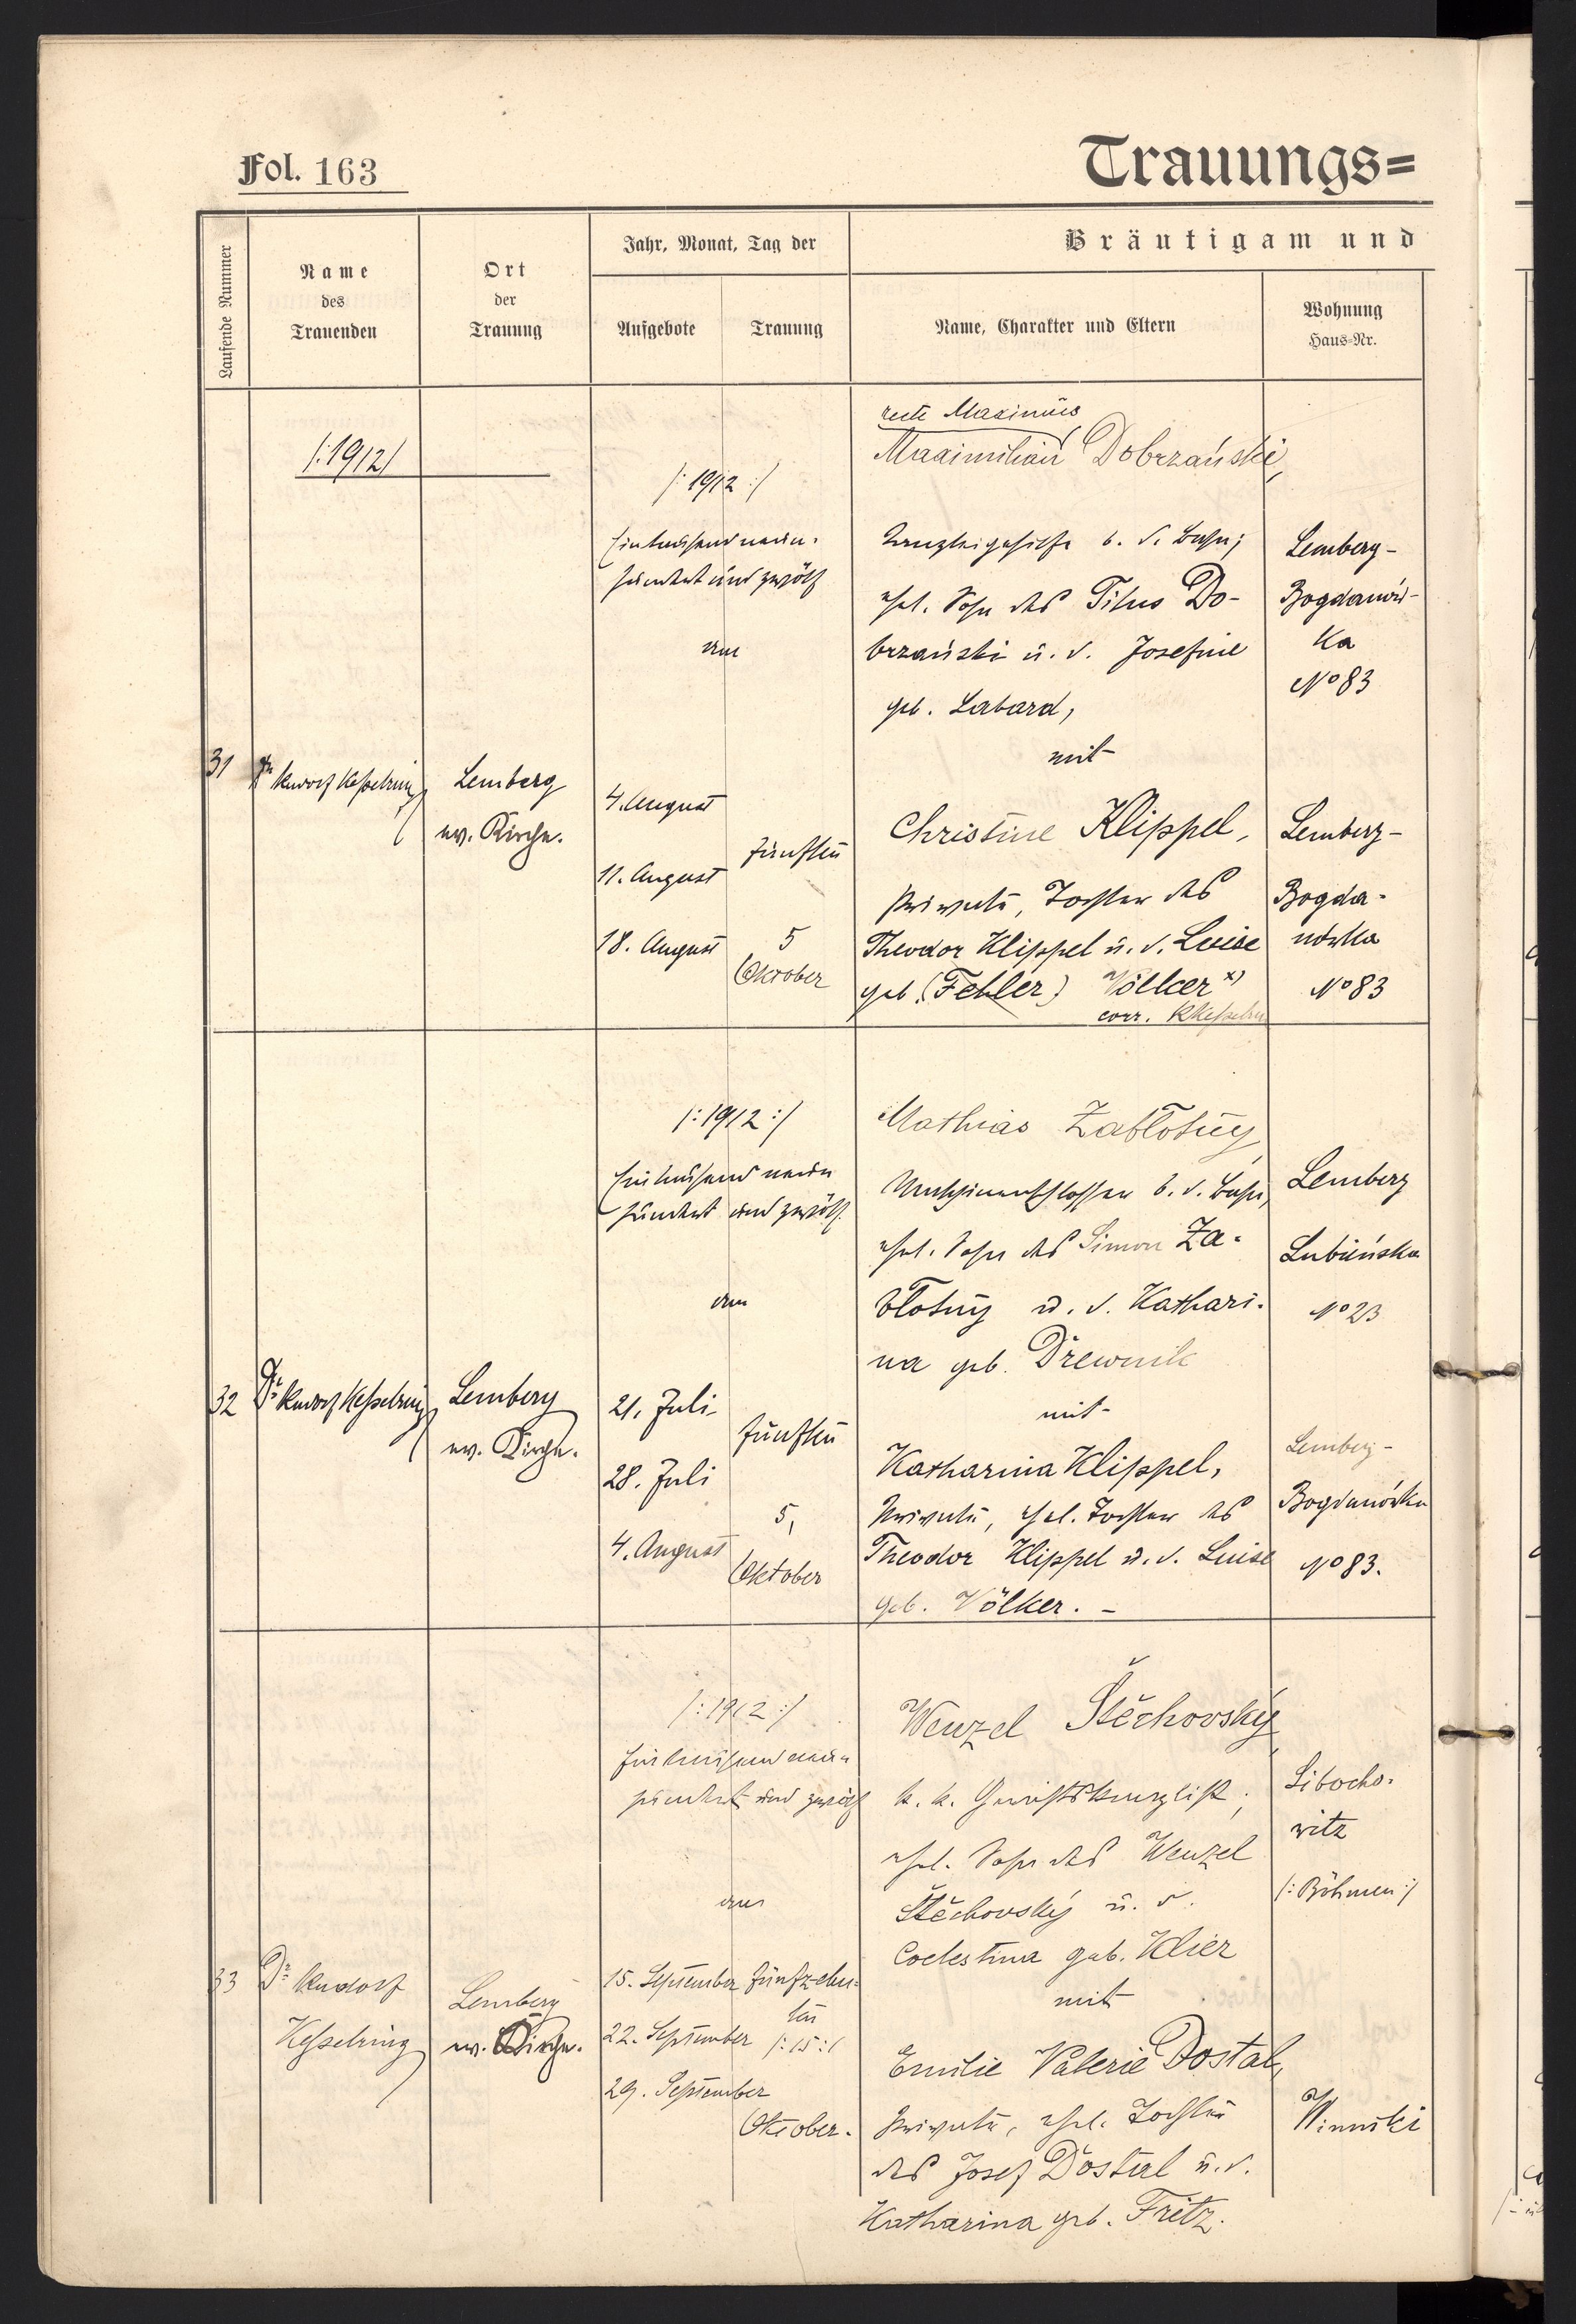 Fol. 163
Trauungs=
Laufende Nummer
Name
des
Trauenden
Ort
der
Trauung
Jahr, Monat, Tag der
Aufgebote
Trauung
Bräutigam und
Name, Charakter und Eltern
Wohnung
Haus-Nr.
/:1912/
/:1912:/
Eintausendneun-
hundert und zwölf
am
31
Dr Rudolf Kesselring
Lemberg
ev. Kirche.
4. August
11. August
18. August
fünften
5
Oktober
recte Maximus
Maximilian Dobrzański,
Kanzleigehilfe b. d. Bahn;
ehel. Sohn des Titus Do-
brzański u. d. Josefine
geb. Labard,
mit
Christine Klippel,
Private, Tochter des
Theodor Klippel u. d. Luise
geb. (Fehler) Völker x)
corr. RKesselring
Lemberg-
Bogdanów-
ka
No 83
Lemberg-
Bogda-
nówka
No 83
/:1912:/
Eintausend neun
hundert und zwölf
am
32
Dr Rudolf Kesselring
Lemberg
ev. Kirche.
21. Juli
28. Juli
4. August
fünften
5,
Oktober
Mathias Zabłotny,
Maschinenschlosser b. d. Bahn,
ehel. Sohn des Simon Za-
błotny u. d. Kathari-
na geb. Drewnik
mit
Katharina Klippel,
Private, ehel. Tochter des
Theodor Klippel u. d. Luise
geb. Völker. -
Lemberg
Lubieńska
No 23
Lemberg-
Bogdanówka
No 83.
/:1912:/
Eintausend neun
hundert und zwölf
am
33
Dr Rudolf
Kesselring
Lemberg
ev. Kirche.
15. September
22. September
29. September
fünfzehn-
ten
/:15:/
Oktober.
Wenzel Štěchovský
k. k. Gerichtskanzlist,
ehel. Sohn des Wenzel
Štěchovský u. d.
Coelestina geb. Klier
mit
Emilie Valerie Dostal,
Private, ehel. Tochter
des Josef Dostal u. d.
Katharina geb. Fritz.
Libocho-
witz
/:Böhmen:/
Winniki